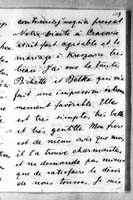 continuer jusqu'a present
Notre visite à Cracovie
était fort agréable et le
mariage
beau. J'ai vu le
Pichette et Betka qui m'a
fait une impression
ment favorable. Elle
est très simple, très belle
et très gentille. Mon frère
est de même avis que moi
il l'a trouvé charmante,
et ne demande pas mieux
que de satisfaire le désir
de nous tous. Je